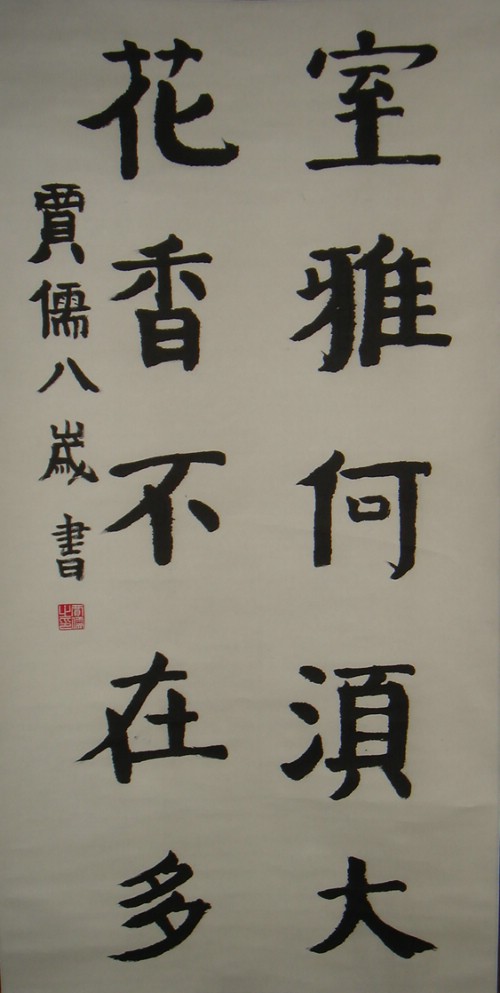 室雅何須大
花香不在多
賈儒八歲書